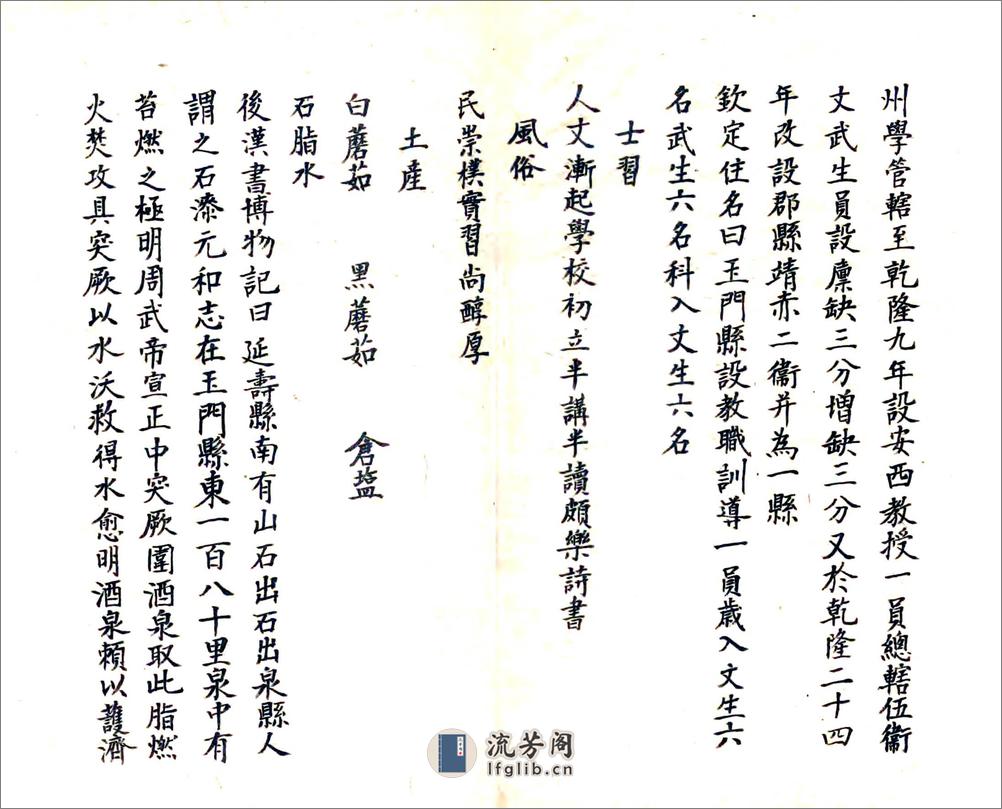 州學管轄至乾隆九年設安西教授一員總轄伍衞
文武生員設廩缺三分增缺三分又於乾隆二十四
年改設郡縣靖赤二衞并為一縣
欽定佳名曰玉門縣設教職訓導一員歲入文生六
名武生六名科入文生六名
士習
人文漸起學校初立半講半讀頗樂詩書
風俗
民崇樸實習尚醇厚
土産
白蘑茹 黑蘑茹 倉塩
石脂水
後漢書博物記曰延壽縣南有山石出石出泉縣人
謂之石漆元和志在玉門縣東一百八十里泉中有
苔燃之極明周武帝宣正中突厥圍酒泉取此脂燃
火焚攻具突厥以水沃救得水愈明酒泉賴以護濟
流芳阁
lfglib.cn